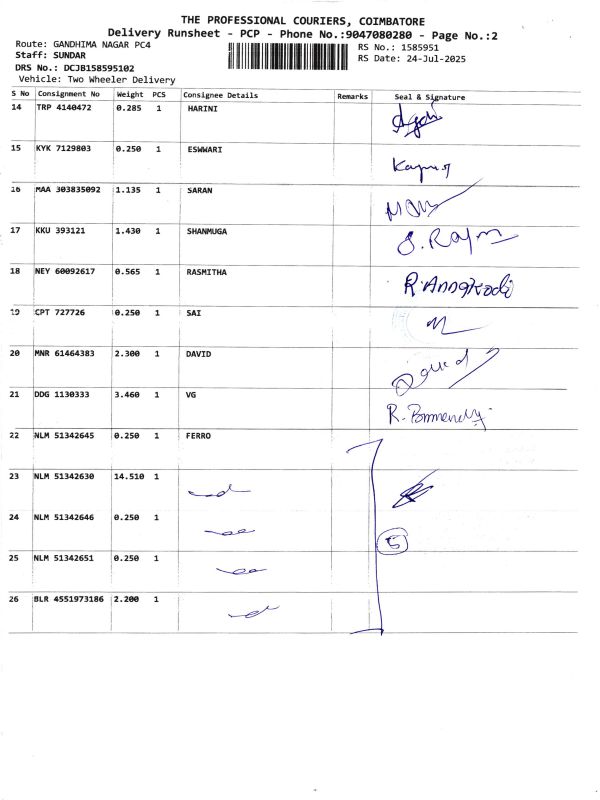 THE PROFESSIONAL COURIERS, COIMBATORE
Delivery Runsheet - PCP - Phone No.:9047080280 - Page No.:2
Route: GANDHIMA NAGAR PC4
Staff: SUNDAR
DRS No.: DCJB158595102
Vehicle: Two Wheeler Delivery
RS No.: 1585951
RS Date: 24-Jul-2025
S No Consignment No Weight PCS Consignee Details Remarks Seal & Signature
14 TRP 4140472 0.285 1 HARINI
15 KYK 7129803 0.250 1 ESWWARI
16 MAA 303835092 1.135 1 SARAN
17 KKU 393121 1.430 1 SHANMUGA
18 NEY 60092617 0.565 1 RASMITHA
19 CPT 727726 0.250 1 SAI
20 MNR 61464383 2.300 1 DAVID
21 DDG 1130333 3.460 1 VG
22 NLM 51342645 0.250 1 FERRO
23 NLM 51342630 14.510 1
24 NLM 51342646 0.250 1
5
25 NLM 51342651 0.250 1
26 BLR 4551973186 2.200 1